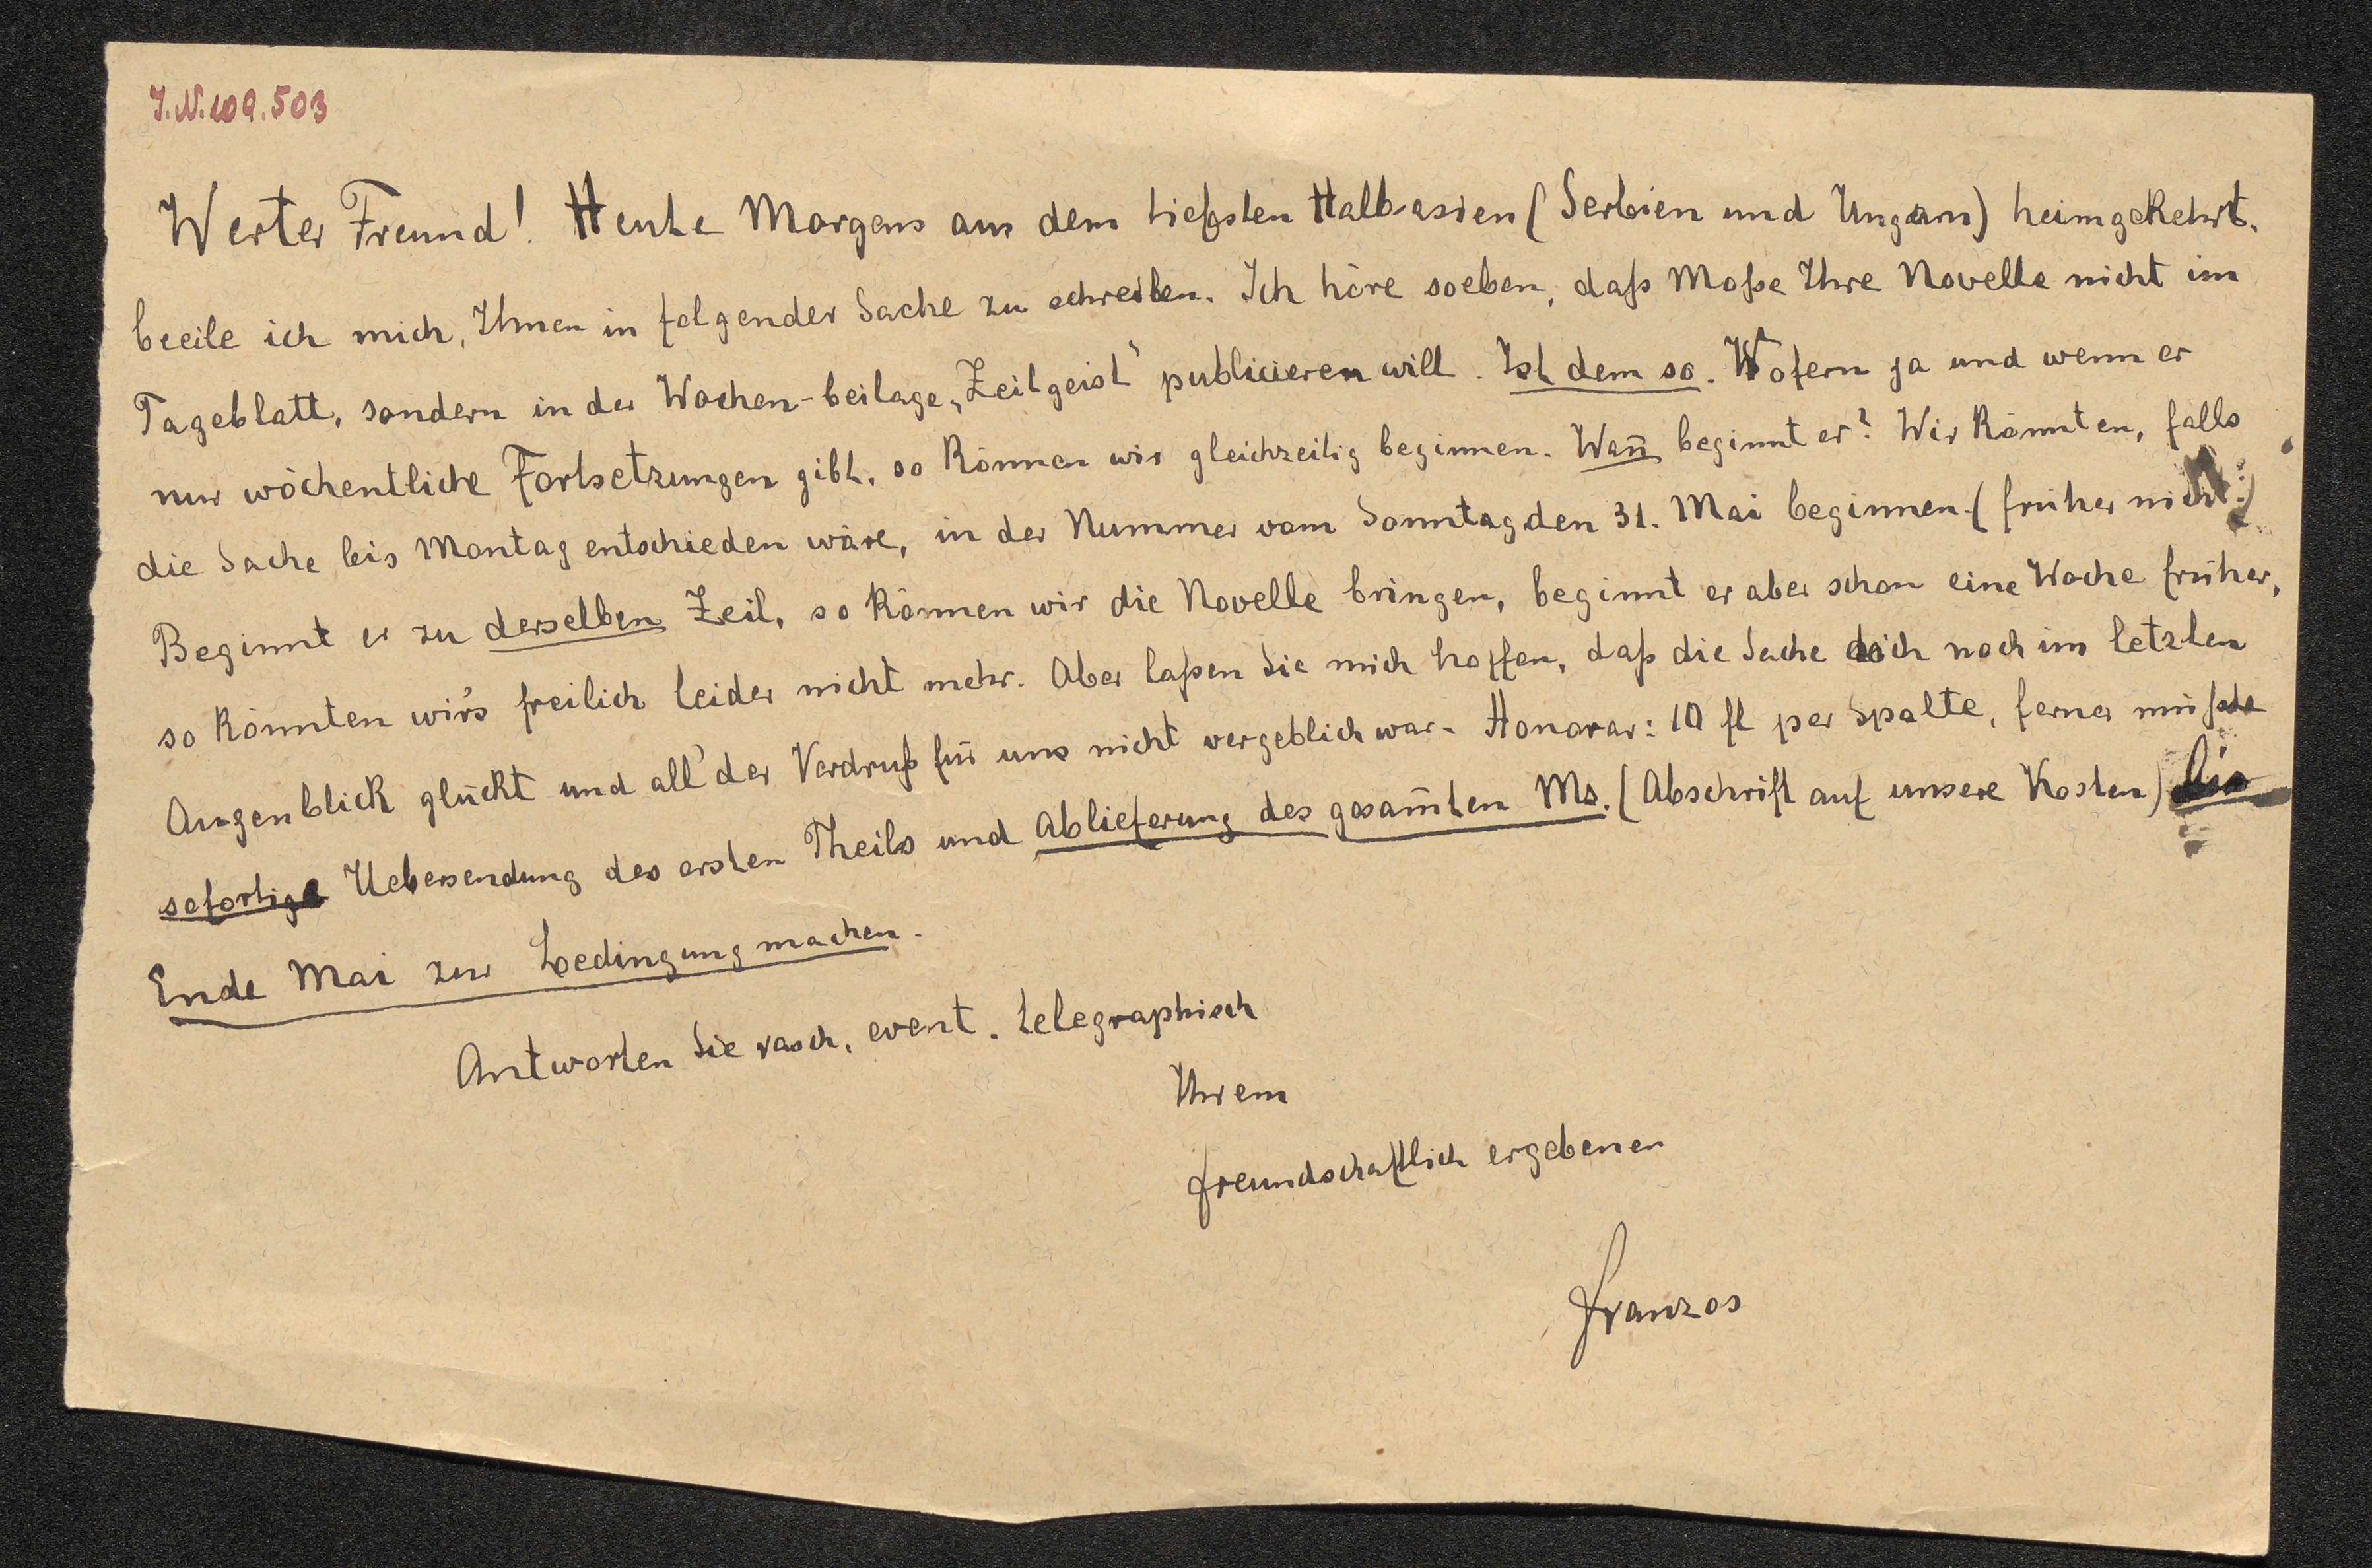 J.N.109.503
Werter Freund! Heute Morgens aus dem tiefsten Halb-asien (Serbien und Ungarn) heimgekehrt,
beeile ich mich, Ihnen in folgender Sache zu schreiben. Ich höre soeben, daß Moße Ihre Novelle nicht im
Tageblatt, sondern in der Wochen-beilage „Zeitgeist“ publicieren will. Ist dem so. Wofern ja und wenn er
nur wöchentliche Fortsetzungen gibt, so können wir gleichzeitig beginnen. Wan̄ beginnt er? Wir könnten, falls
die Sache bis Montag entschieden wäre, in der Nummer vom Sonntag den 31. Mai beginnen (früher nicht!)
Beginnt er zu derselben Zeit, so können wir die Novelle bringen, beginnt er aber schon eine Woche früher,
so könnten wir's freilich leider nicht mehr. Aber laßen Sie mich hoffen, daß die Sache doch noch im letzten
Augenblick glückt und all' der Verdruß für uns nicht vergeblich war. Honorar: 10 fl per Spalte, ferner müßte
sofortige Uebersendung des ersten Theils und Ablieferung des gesam̄ten Ms. (Abschrift auf unsere Kosten) bis
Ende Mai zur bedingung machen.
Antworten Sie rasch, event. telegraphisch
Ihrem
freundschaftlich ergebenen
Franzos